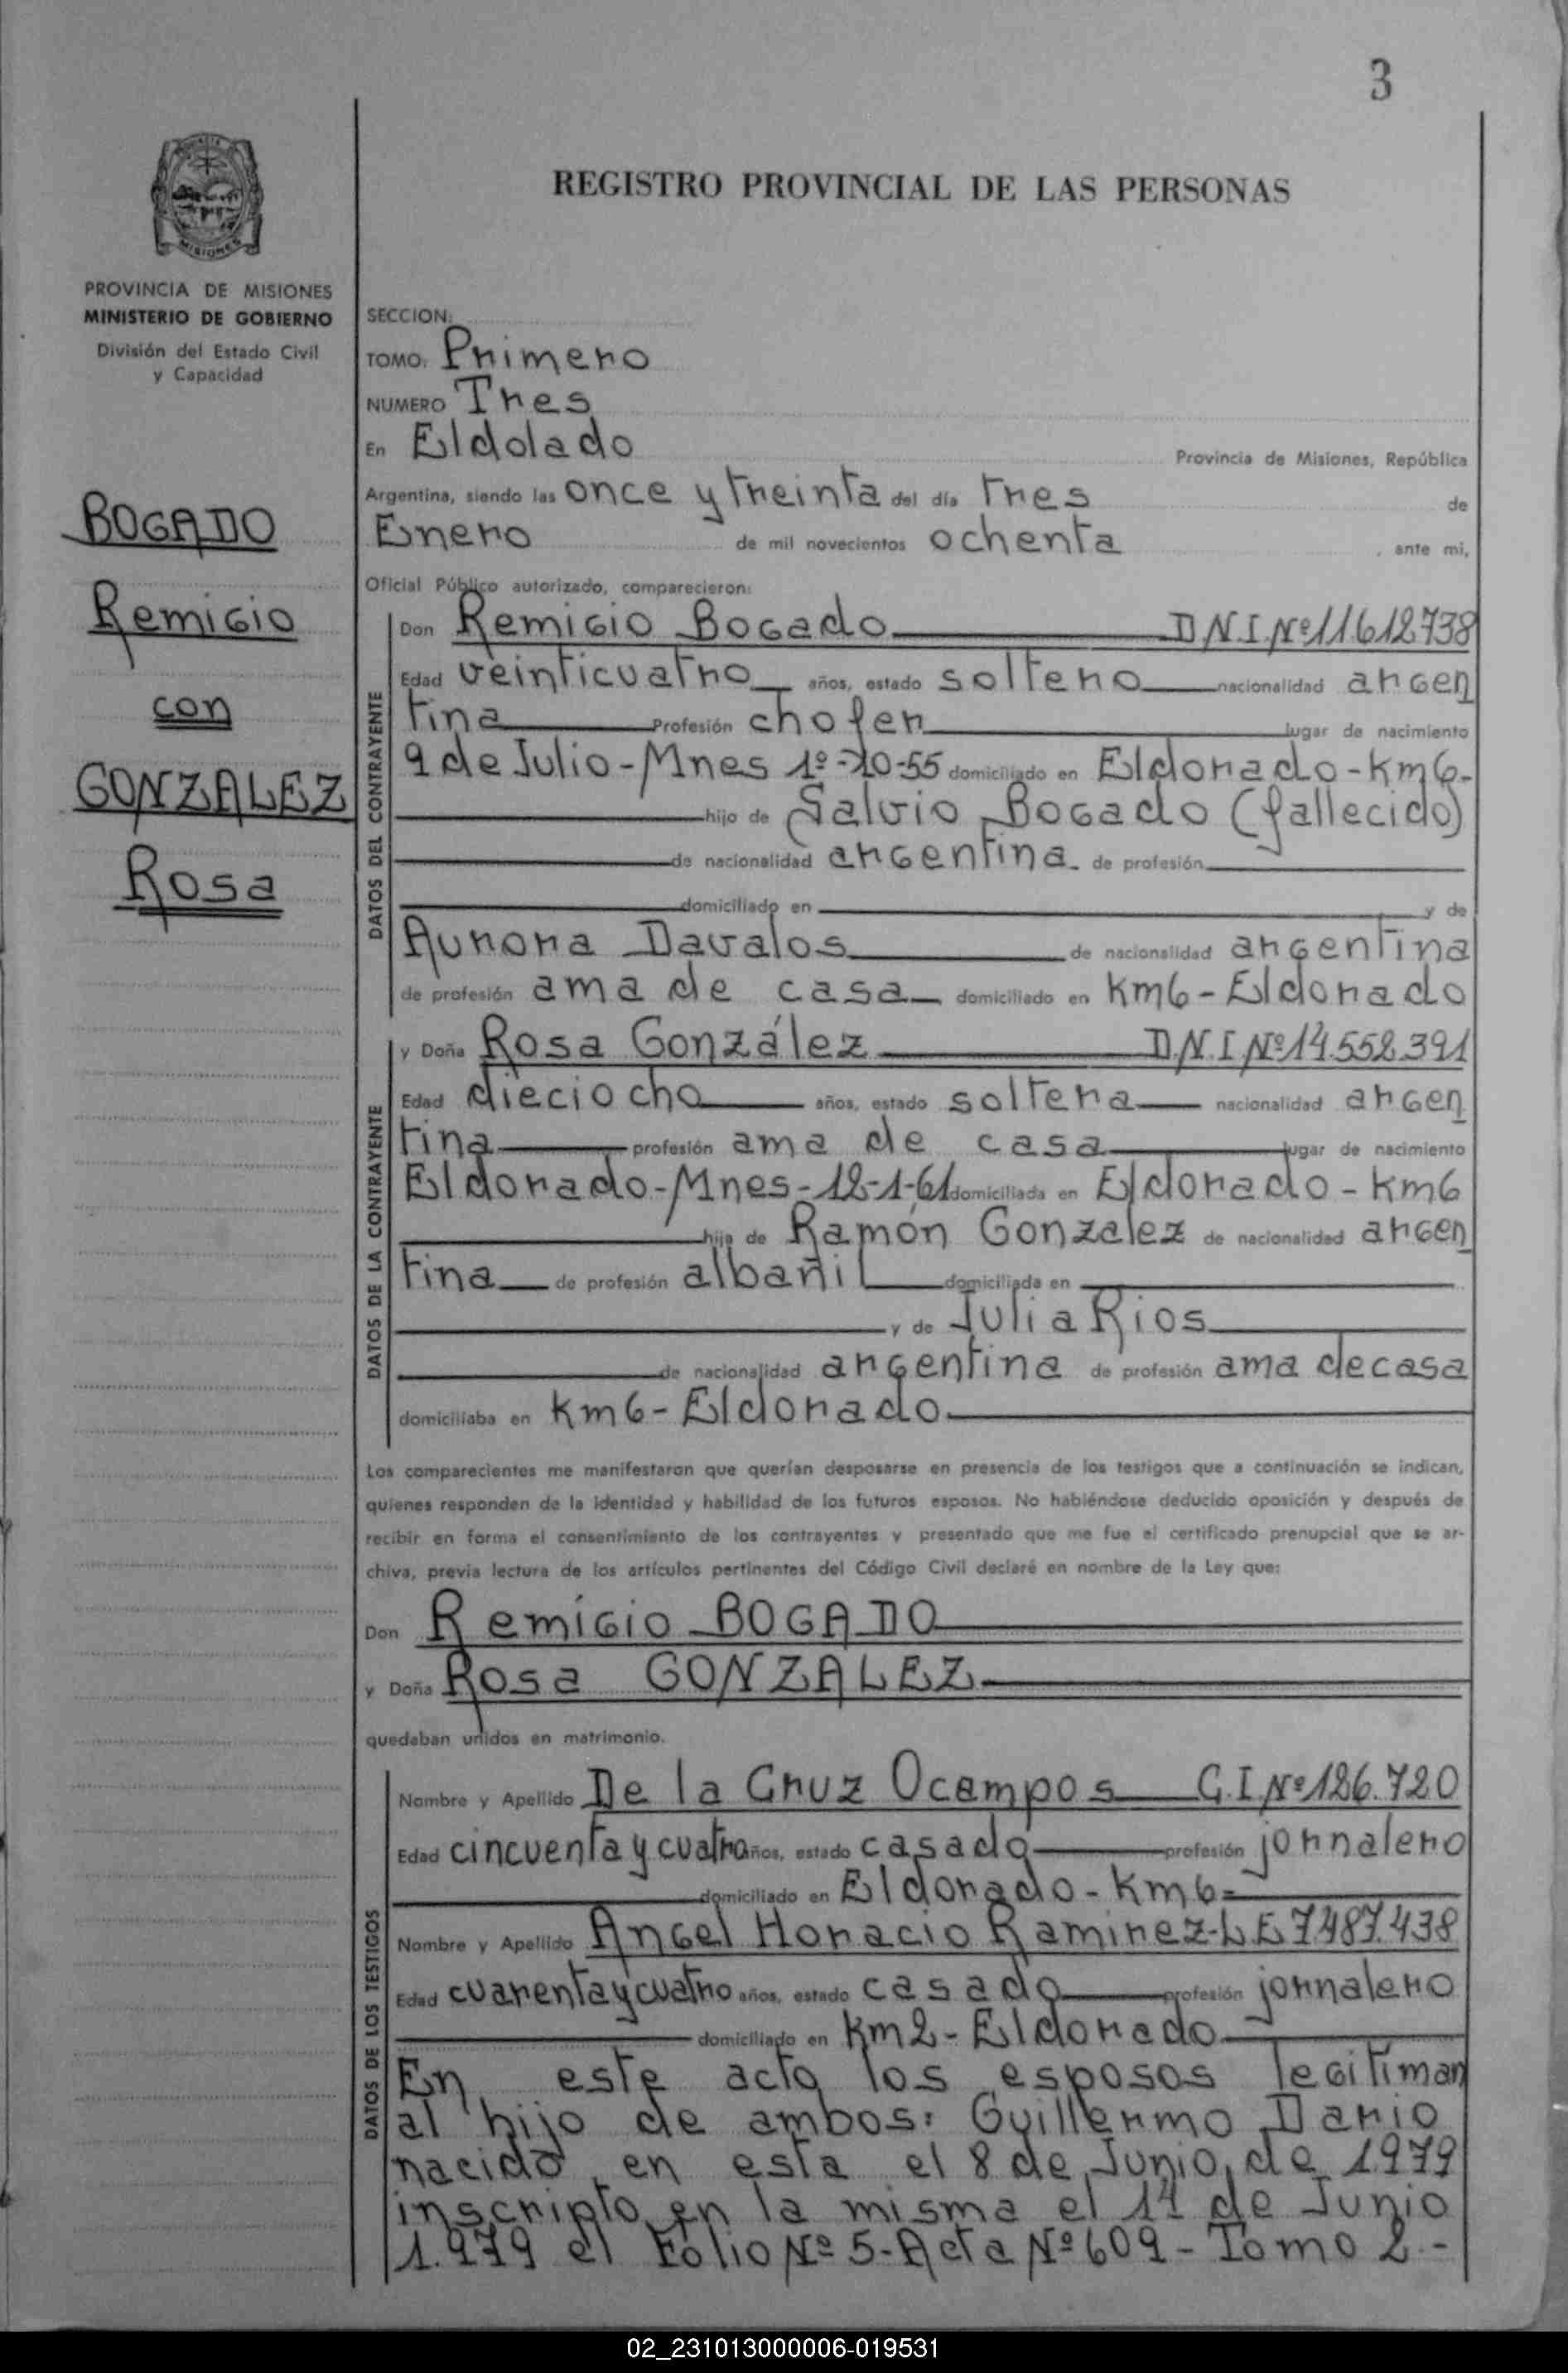 3
REGISTRO PROVINCIAL DE LAS PERSONAS
MISIONES
PROVINCIA DE MISIONES
MINISTERIO DE GOBIERNO
División del Estado Civil
y Capacidad
BOGADO
Remigio
con
GONZALEZ
Rosa
SECCION:
TOMO: Primero
NUMERO Tres
En Eldolado Provincia de Misiones, República
Argentina, siendo las once y treinta del día tres de
Enero de mil novecientos ochenta, ante mi,
Oficial Público autorizado, comparecieron:
DATOS DEL CONTRAYENTE
Don Remigio Bogado D N I Nº 11612738
Edad veinticuatro años, estado soltero nacionalidad argen
tina Profesión chofer lugar de nacimiento
9 de Julio - Mnes 1º-10-55 domiciliado en Eldorado - Km6-
hijo de Salvio Bogado (fallecido)
de nacionalidad argentina de profesión
domiciliado en y de
Aurora Davalos de nacionalidad argentina
de profesión ama de casa domiciliado en Km6 - Eldorado
DATOS DE LA CONTRAYENTE
y Doña Rosa González D.N.I Nº 14.558.391
Edad dieciocho años, estado soltera nacionalidad argen
tina profesión ama de casa lugar de nacimiento
Eldorado - Mnes - 12-1-61 domiciliada en Eldorado - Km6
hija de Ramón Gonzalez de nacionalidad argen
tina de profesión albañil domiciliada en
y de Julia Rios
de nacionalidad argentina de profesión ama de casa
domiciliaba en Km6 - Eldorado
Los comparecientes me manifestaron que querían desposarse en presencia de los testigos que a continuación se indican,
quienes responden de la identidad y habilidad de los futuros esposos. No habiéndose deducido oposición y después de
recibir en forma el consentimiento de los contrayentes y presentado que me fue el certificado prenupcial que se ar-
chiva, previa lectura de los artículos pertinentes del Código Civil declaré en nombre de la Ley que:
Don Remigio BOGADO
y Doña Rosa GONZALEZ
quedaban unidos en matrimonio.
DATOS DE LOS TESTIGOS
Nombre y Apellido De la Cruz Ocampos C.I Nº 126.720
Edad cincuenta y cuatro años, estado casado profesión jornalero
domiciliado en Eldorado - Km6=
Nombre y Apellido Angel Horacio Raminez - L E 7.487.438
Edad cuarenta y cuatro años, estado casado profesión jornalero
domiciliado en Km2 - Eldorado
En este acto los esposos legitiman
al hijo de ambos: Guillermo Dario
nacido en esta el 8 de Junio de 1979
inscripto en la misma el 14 de Junio
1.979 el Folio Nº 5 - Acta Nº 609 - Tomo 2 -
02_231013000006-019531